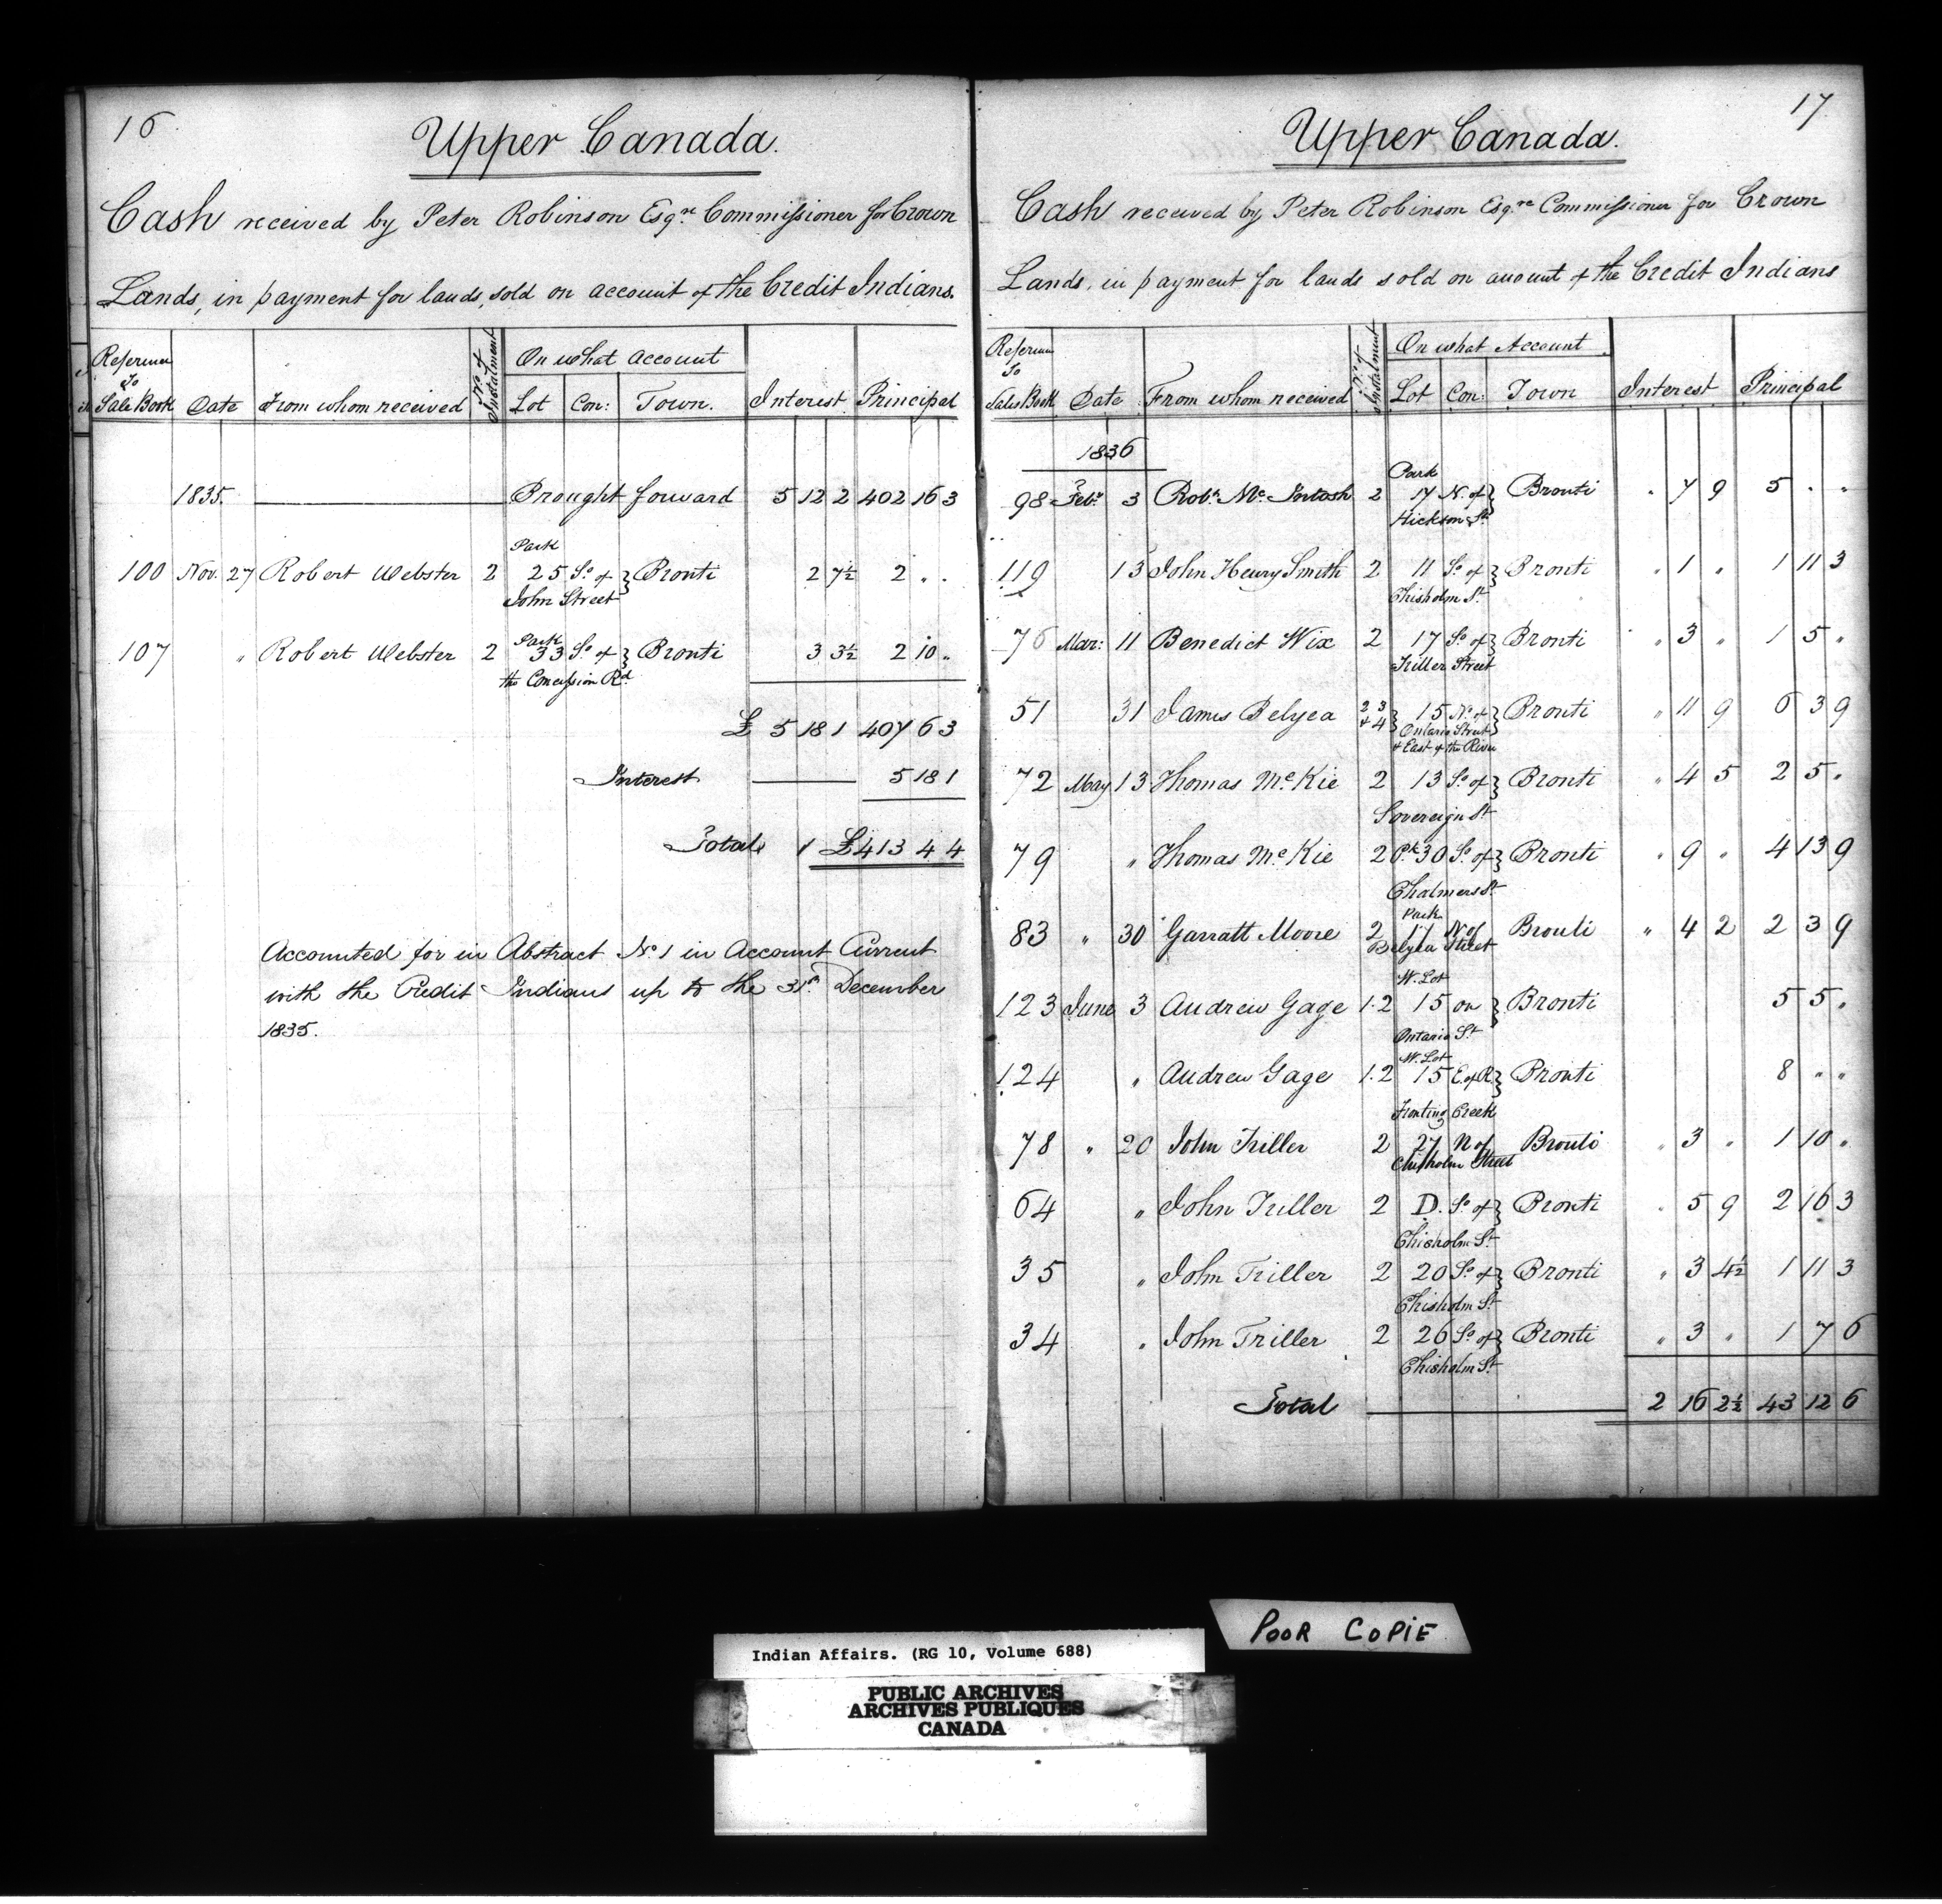 16
Upper Canada.
Cash received by Peter Robinson Esqre Commissioner for Crown
Lands, in payment for lands, sold on account of the Credit Indians.
Reference To Sale Book | Date | From whom received | No. of Instalment | On what account | Lot | Con: | Town. | Interest | Principal
1835. Brought forward 5 12 2 402 16 3
Park
100 Nov. 27 Robert Webster 2 25 So of } Bronti 2 7½ 2 " "
John Street
Park
107 " Robert Webster 2 33 So of } Bronti 3 3½ 2 10 "
the Concession Rd
£ 5 18 1 407 6 3
Interest 5 18 1
Total £413 4 4
Accounted for in Abstract No 1 in Account Current
with the Credit Indians up to the 31st December
1835.
17
Upper Canada.
Cash received by Peter Robinson Esqre Commissioner for Crown
Lands, in payment for lands sold on account of the Credit Indians
Reference To Sales Book | Date | From whom received | No. of Instalment | On what Account | Lot | Con: | Town | Interest | Principal
1836
Park
98 Feby 3 Robt McIntosh 2 17 N. of } Bronti " 7 9 5 " "
Hickson St
119 13 John Henry Smith 2 11 So of } Bronti " 1 " 1 11 3
Chisholm St
76 Mar: 11 Benedict Wix 2 17 So of } Bronti " 3 " 1 5 "
Triller Street
51 31 James Belyea 2 3 & 4 } 15 No of } Bronti " 11 9 6 3 9
Ontario Street
& East of the River
72 May 13 Thomas McKie 2 13 So of } Bronti " 4 5 2 5 "
Sovereign St
79 " Thomas McKie 2 Pk 30 So of } Bronti " 9 " 4 13 9
Chalmers St
Park
83 " 30 Garratt Moore 2 17 N of Bronti " 4 2 2 3 9
Belyea Street
W. Lot
123 June 3 Andrew Gage 1.2 15 on } Bronti 5 5 "
Ontario St
W. Lot
124 " Andrew Gage 1.2 15 E. of R } Bronti 8 " "
Fronting Creek
78 " 20 John Triller 2 27 N of Bronti " 3 " 1 10 "
Chisholm Street
64 " John Triller 2 D. So of } Bronti " 5 9 2 16 3
Chisholm St
35 " John Triller 2 20 So of } Bronti " 3 4½ 1 11 3
Chisholm St
34 " John Triller 2 26 So of } Bronti " 3 " 1 7 6
Chisholm St
Total 2 16 2½ 43 12 6
POOR COPIE
Indian Affairs. (RG 10, Volume 688)
PUBLIC ARCHIVES
ARCHIVES PUBLIQUES
CANADA